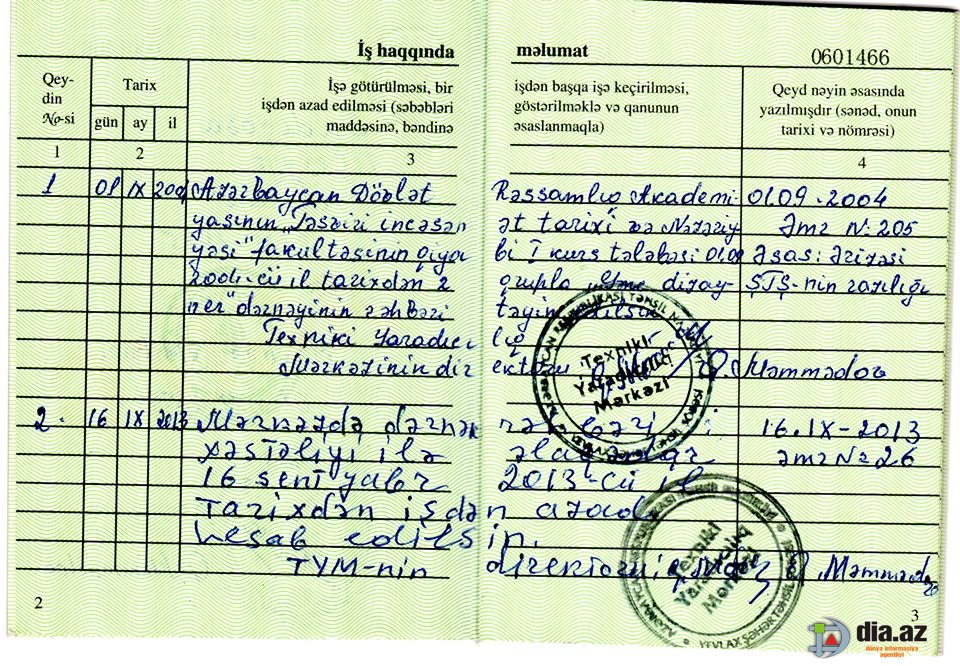 İş haqqında məlumat
0601466
Qey-
din
№-si
Tarix
gün ay il
İşə götürülməsi, bir
işdən azad edilməsi (səbəbləri
maddəsinə, bəndinə
işdən başqa işə keçirilməsi,
göstərilməklə və qanunun
əsaslanmaqla)
Qeyd nəyin əsasında
yazılmışdır (sənəd, onun
tarixi və nömrəsi)
1 2 3 4
1 01 IX 2004 Azərbaycan Dövlət Rəssamlıq Akademi- 01.09.2004
yasının "Təsviri incəsənət tarixi və Nəzəriy Əmr №205
yəsi" fakultəsinin qiyabi I kurs tələbəsi 01.09 Əsas: Ərizəsi
2004-cü il tarixdən 2 qrupla dizay- ŞTŞ-nin razılığı
ner" dərnəyinin rəhbəri təyin edilsin
Texniki Yaradıcılıq
Mərkəzinin direktoru Məmmədov
2. 16 IX 2013 Mərkəzdə dərnək rəhbəri 16.IX-2013
xəstəliyi ilə əlaqədar Əmr №26
16 sentyabr 2013-cü il
tarixdən işdən azad
hesab edilsin.
TYM-nin direktoru Məmmədov
Texniki
Yaradıcılıq
Mərkəzi
Texniki
Yaradıcılıq
Mərkəzi
YEVLAX ŞƏHƏR TƏHSİL
2
3
dia.az
dünya informasiya
agentliyi